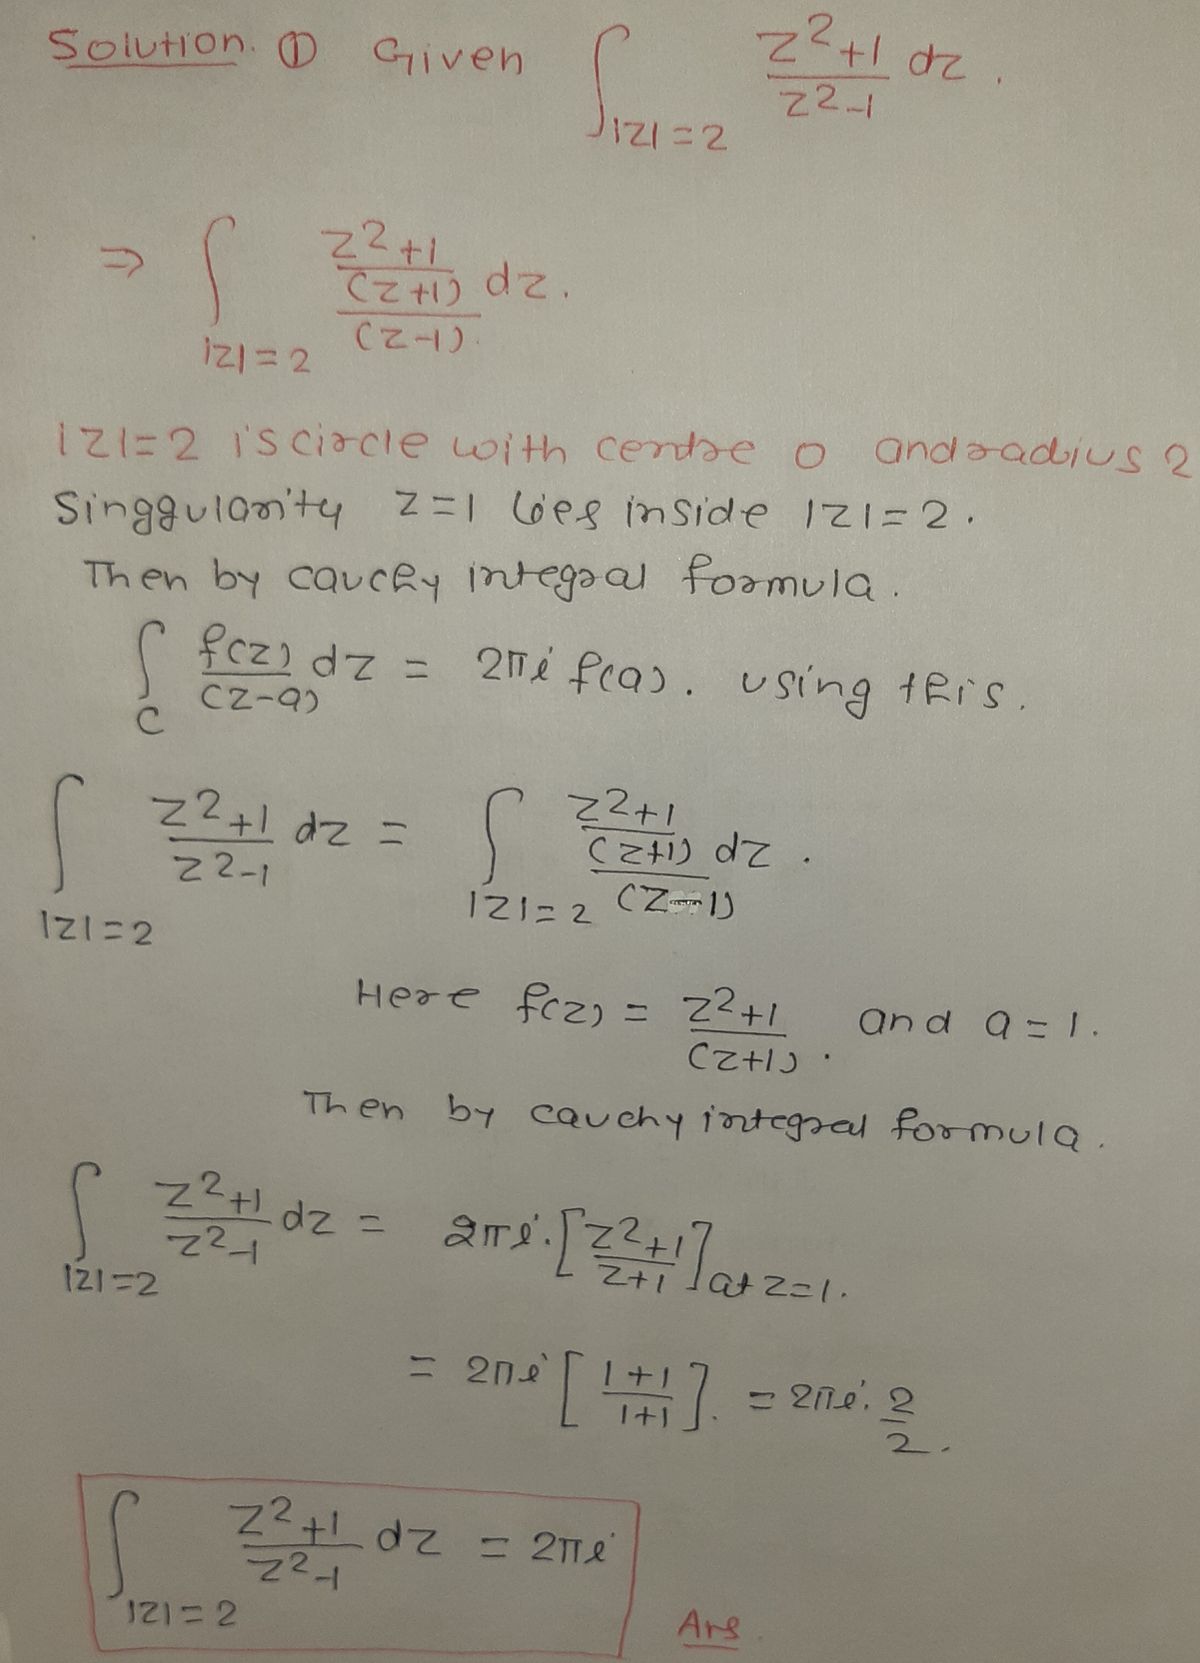 Solution. ① Given ∫_{|z|=2} (z²+1)/(z²-1) dz.
⇒ ∫_{|z|=2} ((z²+1)/(z+1))/(z-1) dz.
|z|=2 is circle with centre 0 and radius 2
Singgularity z=1 lies inside |z|=2.
Then by cauchy integral formula.
∫_C f(z)/(z-a) dz = 2πi f(a). using this.
∫_{|z|=2} (z²+1)/(z²-1) dz = ∫_{|z|=2} ((z²+1)/(z+1))/(z-1) dz.
Here f(z) = (z²+1)/(z+1). and a=1.
Then by cauchy integral formula.
∫_{|z|=2} (z²+1)/(z²-1) dz = 2πi.[(z²+1)/(z+1)] at z=1.
= 2πi [(1+1)/(1+1)]. = 2πi. 2/2.
∫_{|z|=2} (z²+1)/(z²-1) dz = 2πi
Ans.